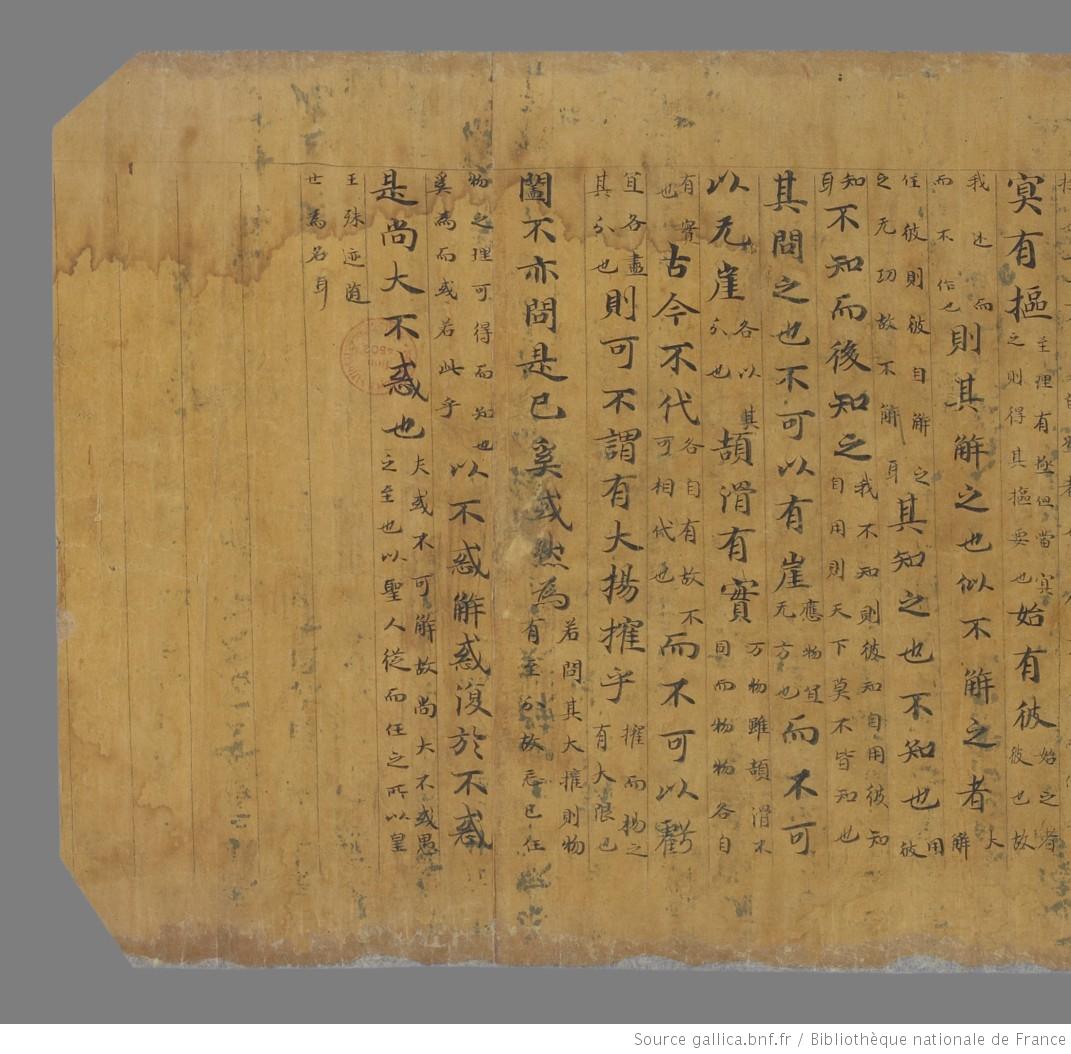 冥有摳主理有極但當冥之則得其摳要也始有彼始之者彼也故
我述而而不作也則其解之也似不解之者夫解
任彼則彼自解之之无功故不解耳其知之也不知也用彼
知耳不知而後知之我不知則彼知自用彼知自用則天下莫不皆知也
其問之也不可以有崖應物宜无方也而不可
以无崖各以其分也頡滑有實万物雖頡滑不同而物物各自
有實也古今不代各自有故不可相代也而不可以虧
宜各盡其分也則可不謂有大揚搉乎搉而揚之有大限也
闔不亦問是已奚或然為若問其大搉則物有至分故忘已任
物之理可得而知也奚為而或若此乎以不惑解惑復於不惑
是尚大不惑也夫或不可解故尚大不或愚之至也以聖人從而任之所以皇
王殊迹随世為名耳
Source gallica.bnf.fr / Bibliothèque nationale de France